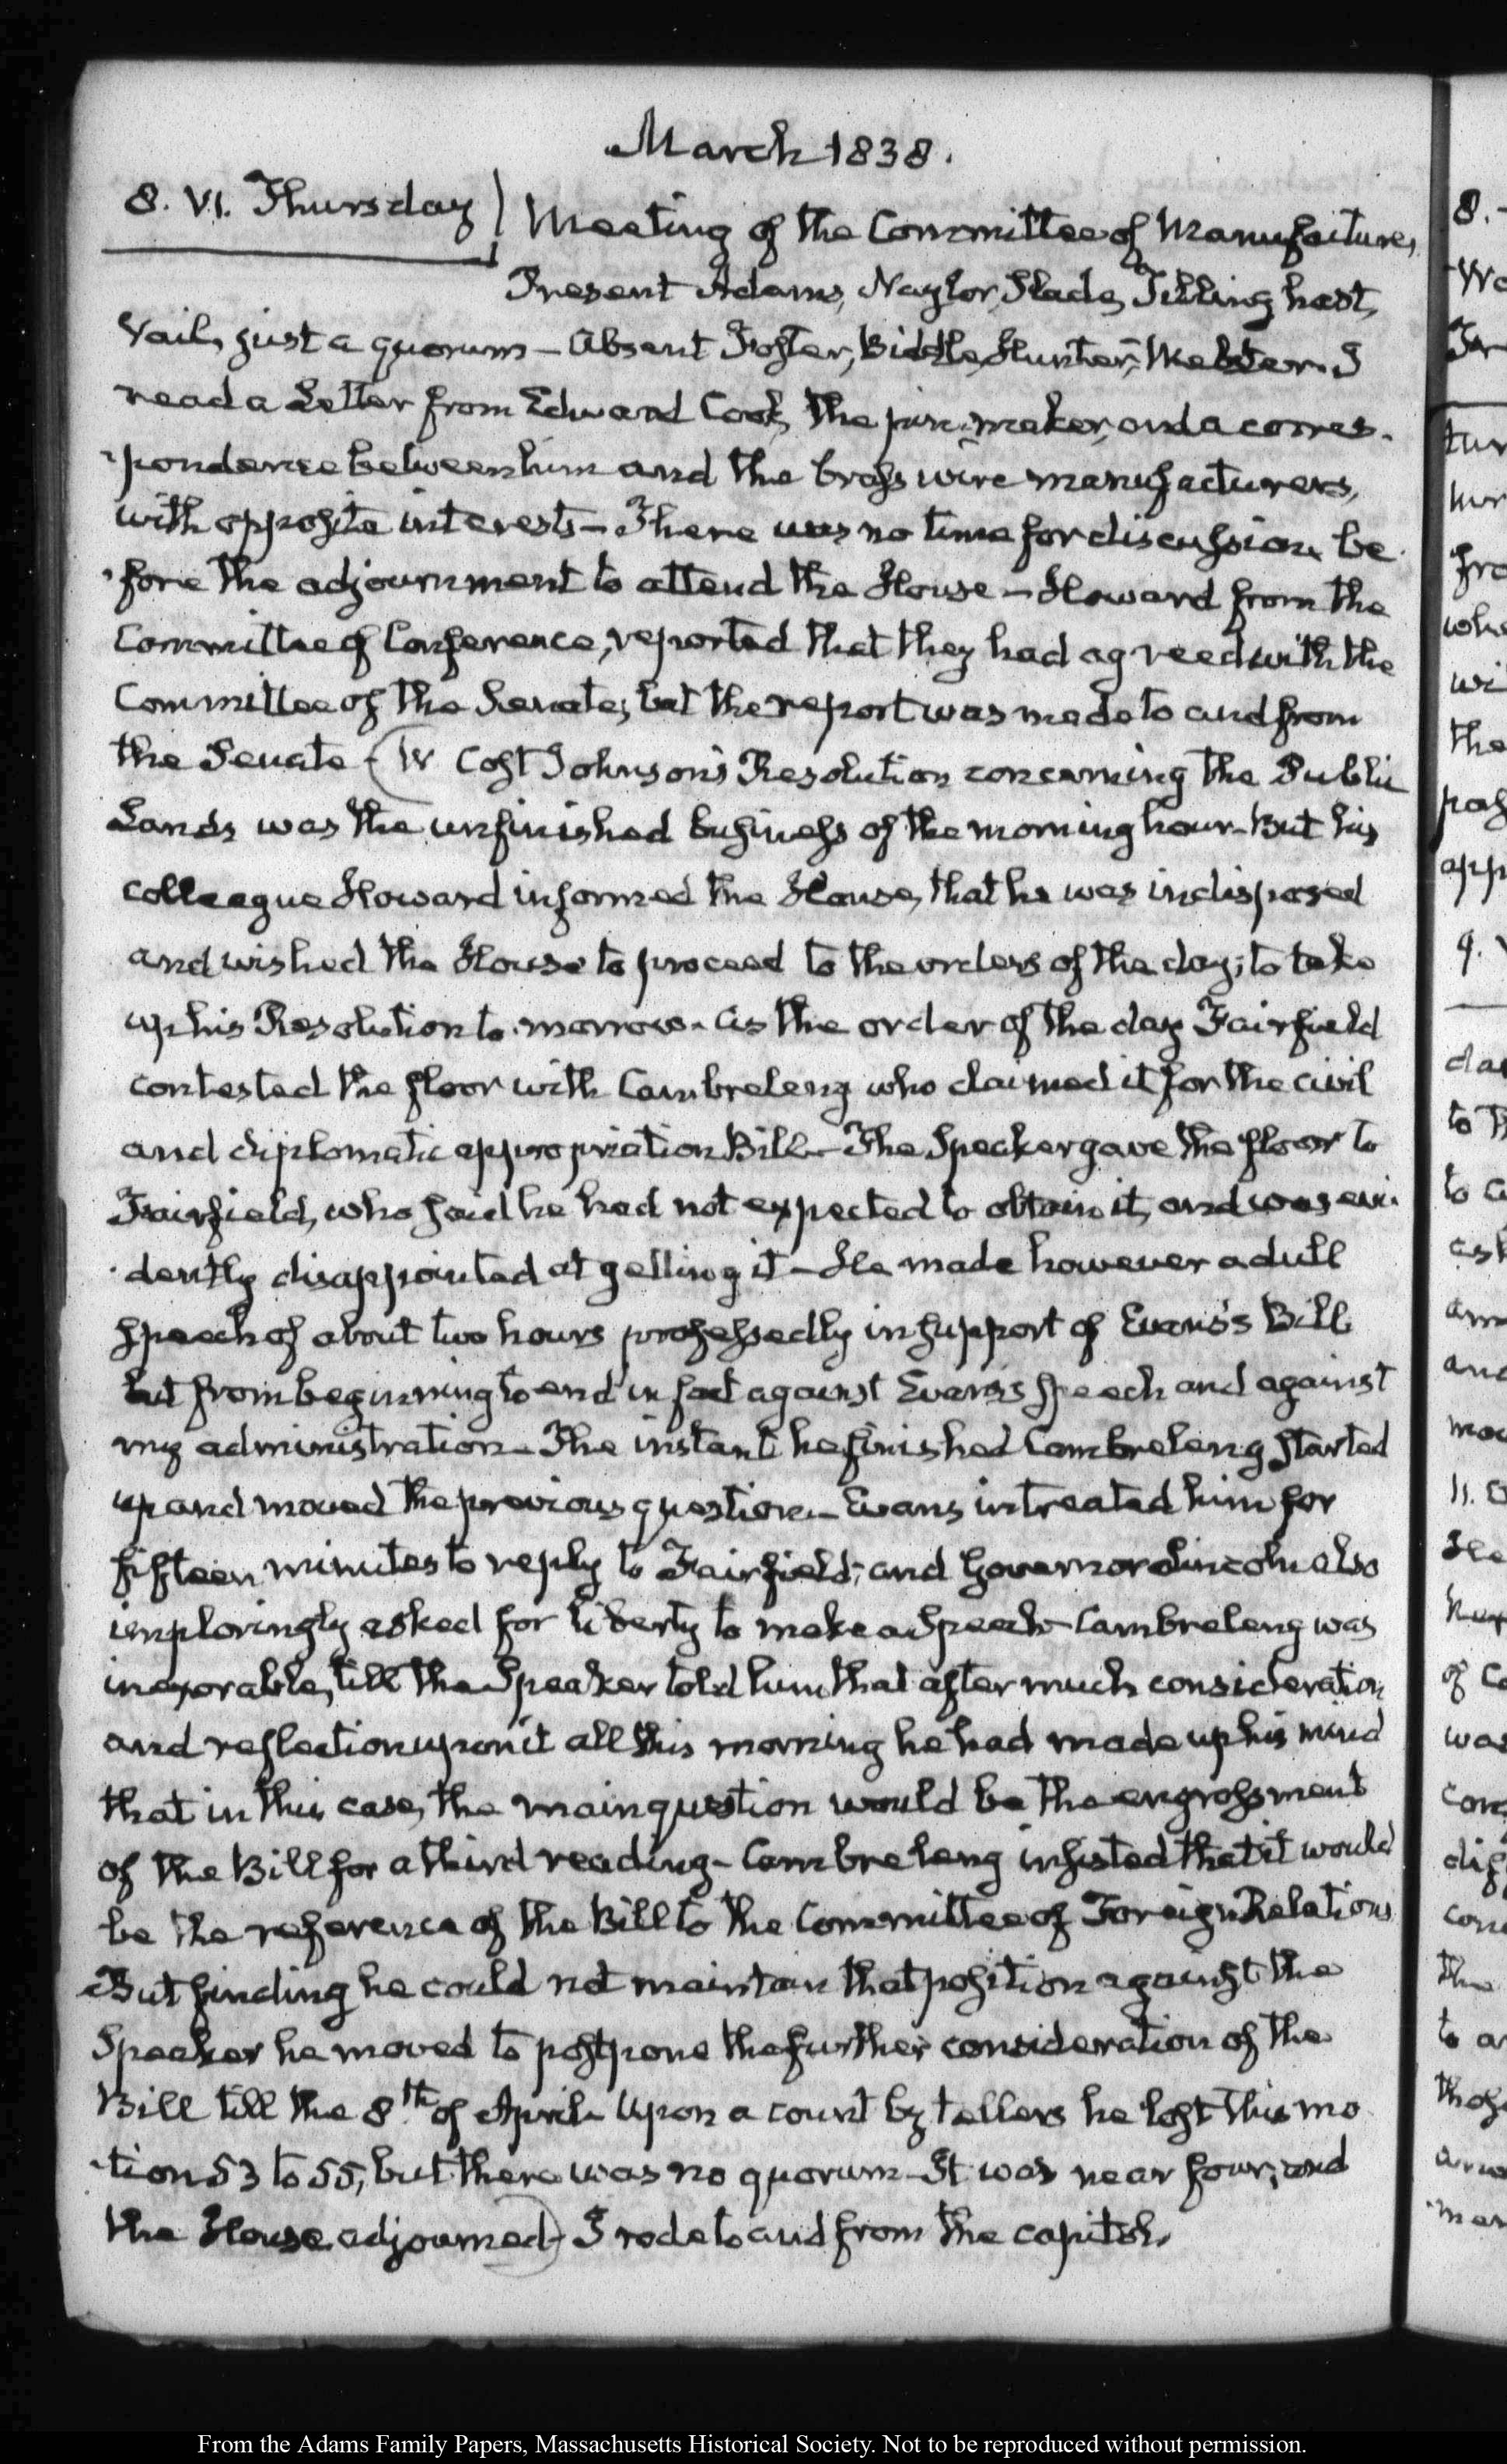 March 1838.
8. VI. Thursday
Meeting of the Committee of Manufactures,
Present Adams, Naylor, Slade, Tillinghast,
Vail, just a quorum — Absent Foster, Biddle, Hunter, Webster. I
read a Letter from Edward Cook, the pin-maker, and a corres-
-pondence between him and the brass wire manufacturers,
with opposite interests — There was no time for discussion be-
-fore the adjournment to attend the House — Howard from the
Committee of Conference, reported that they had agreed with the
Committee of the Senate, but the report was made to and from
the Senate — (W Cost Johnson's Resolution concerning the Public
Lands was the unfinished business of the morning hour — But his
colleague Howard informed the House, that he was indisposed
and wished the House to proceed to the orders of the day; to take
up his Resolution to-morrow — As the order of the day Fairfield
contested the floor with Cambreleng who claimed it for the civil
and diplomatic appropriation Bill — The Speaker gave the floor to
Fairfield, who said he had not expected to obtain it, and was evi-
-dently disappointed at getting it — He made however a dull
speech of about two hours professedly in support of Evans's Bill
but from beginning to end in fact against Evans's speech and against
my administration — The instant he finished Cambreleng started
up and moved the previous question — Evans intreated him for
fifteen minutes to reply to Fairfield; and Governor Lincoln also
imploringly asked for liberty to make a Speech — Cambreleng was
inexorable, till the Speaker told him that after much consideration
and reflection upon it all this morning he had made up his mind
that in this case, the main question would be the engrossment
of the Bill for a third reading — Cambreleng insisted that it would
be the reference of the Bill to the Committee of Foreign Relations
But finding he could not maintain that position against the
Speaker he moved to postpone the further consideration of the
Bill till the 8th of April — Upon a count by tellers he lost this mo
-tion 53 to 55, but there was no quorum — It was near four, and
the House adjourned) I rode to and from the capitol.
From the Adams Family Papers, Massachusetts Historical Society. Not to be reproduced without permission.